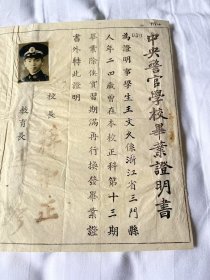 中央警官學校畢業證明書
為證明事學生王文久係浙江省三門縣
人年二四歲曾在本校正科第十三期
畢業除俟實習期滿再行換發畢業證
書外特此證明
校長
教育長